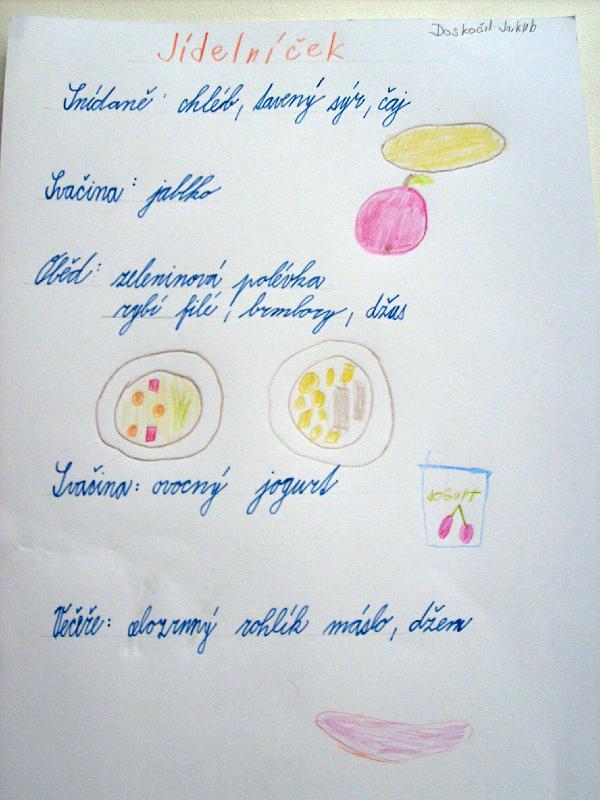 Doskočil Jakub
Jídelníček
Snídaně: chléb, tavený sýr, čaj
Svačina: jablko
Oběd: zeleninová polévka
rybí filé, brambory, džus
Svačina: ovocný jogurt
JOGURT
Večeře: celozrnný rohlík máslo, džem